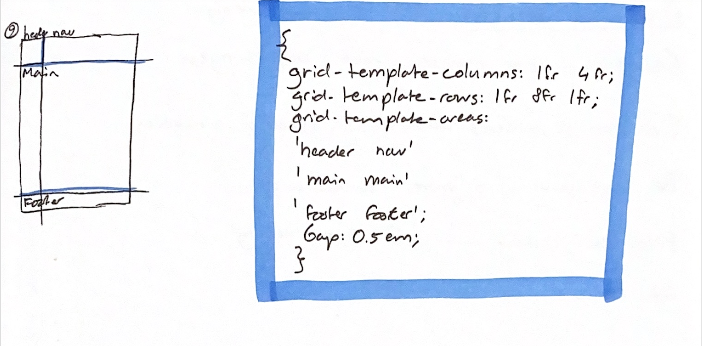 9 header nav
Main
Footer
{
grid-template-columns: 1fr 4fr;
grid-template-rows: 1fr 8fr 1fr;
grid-template-areas:
'header nav'
'main main'
'footer footer';
Gap: 0.5em;
}